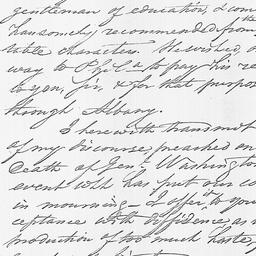 gentleman of education, & com
handsomely recommended from the
table characters. He wished, o
way to Phila to pay his re
to you, Sir, & for that purpos
through Albany.
I herewith transmit
of my Discourse, preached on
Death of Genl Washington
event wch has put our co
in mourning – I offer it to you
ceptance with diffidence, as
production of too much haste,